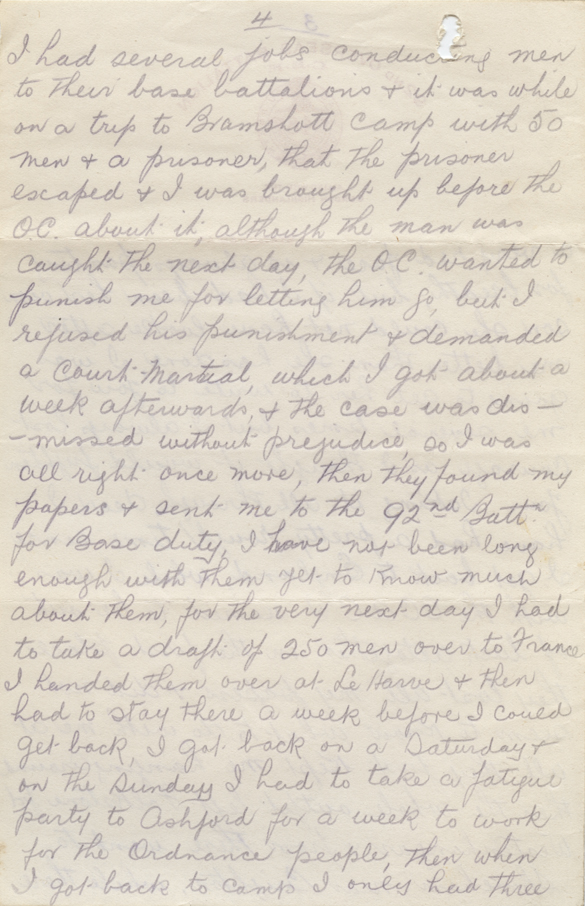 4
I had several jobs conducting men
to their base battalions + it was while
on a trip to Bramshott Camp with 50
men + a prisoner, that the prisoner
escaped + I was brought up before the
O.C. about it, although the man was
caught the next day, the O.C. wanted to
punish me for letting him go, but I
refused his punishment + demanded
a Court-Martial, which I got about a
week afterwards, + the case was dis-
-missed without prejudice, so I was
all right once more, then they found my
papers + sent me to the 92nd Battn
for Base duty, I have not been long
enough with them yet to know much
about them, for the very next day I had
to take a draft of 250 men over to France
I handed them over at Le Harve + then
had to stay there a week before I could
get back, I got back on a Saturday +
on the Sunday I had to take a fatigue
party to Ashford for a week to work
for the Ordnance people, then when
I got back to camp I only had three